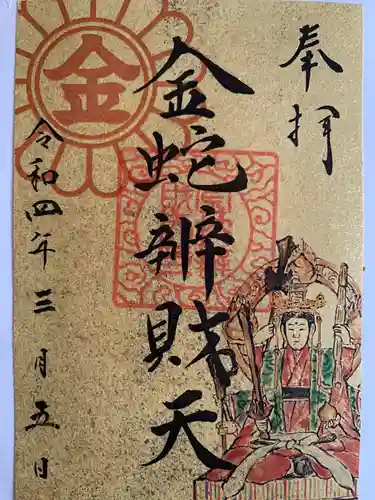 奉拝
金蛇辨財天
令和四年三月五日
金